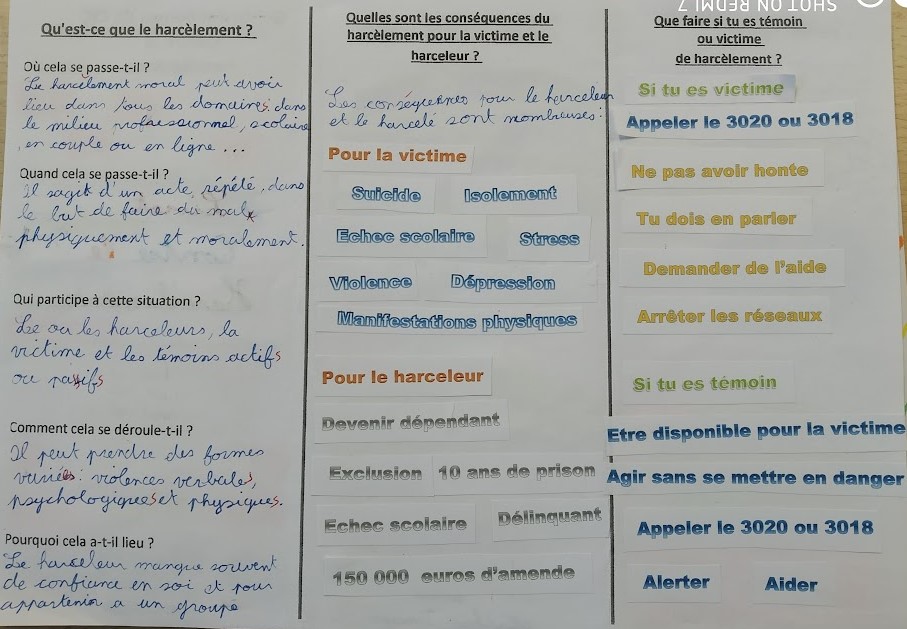 SHOT ON REDMI 7
Qu'est-ce que le harcèlement ?
Où cela se passe-t-il ?
Le harcèlement moral peut avoir
lieu dans tous les domaines: dans
le milieu professionnel, scolaire
, en couple ou en ligne ...
Quand cela se passe-t-il ?
Il sagit d'un acte répété, dans
le but de faire du mal
physiquement et moralement.
Qui participe à cette situation ?
Le ou les harceleurs, la
victime et les témoins actifs
ou passifs
Comment cela se déroule-t-il ?
Il peut prendre des formes
variées: violences verbales,
psychologiques et physiques.
Pourquoi cela a-t-il lieu ?
Le harceleur manque souvent
de confiance en soi et pour
appartenir a un groupe
Quelles sont les conséquences du
harcèlement pour la victime et le
harceleur ?
Les conséquences pour le harceleur
et le harcelé sont nombreuses:
Pour la victime
Suicide Isolement
Echec scolaire Stress
Violence Dépression
Manifestations physiques
Pour le harceleur
Devenir dépendant
Exclusion 10 ans de prison
Echec scolaire Délinquant
150 000 euros d'amende
Que faire si tu es témoin
ou victime
de harcèlement ?
Si tu es victime
Appeler le 3020 ou 3018
Ne pas avoir honte
Tu dois en parler
Demander de l'aide
Arrêter les réseaux
Si tu es témoin
Etre disponible pour la victime
Agir sans se mettre en danger
Appeler le 3020 ou 3018
Alerter Aider